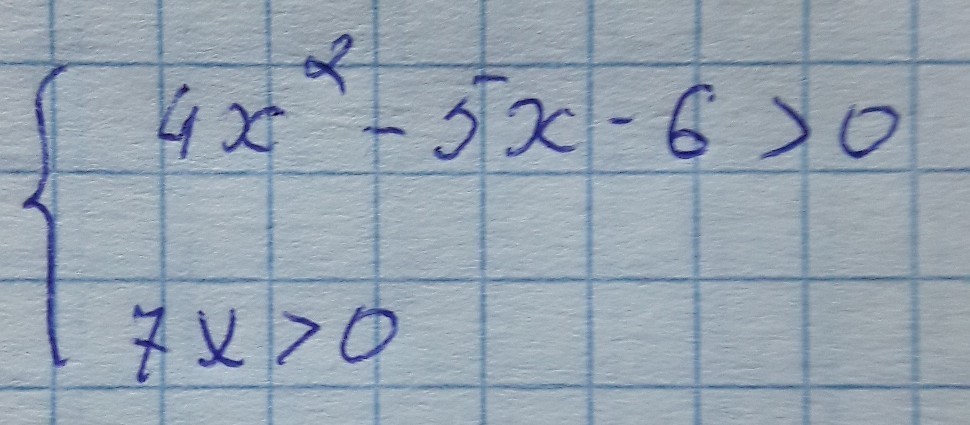 4x² - 5x - 6 > 0
7x > 0